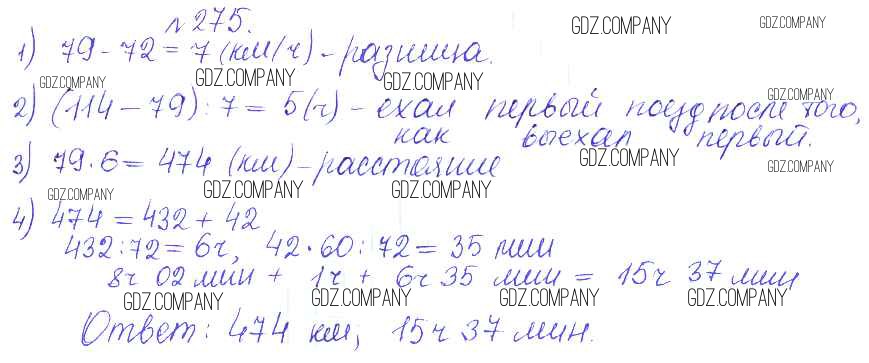 №275.
GDZ.COMPANY GDZ.COMPANY
1) 79 - 72 = 7 (км/ч) - разница.
GDZ.COMPANY GDZ.COMPANY GDZ.COMPANY
GDZ.COMPANY
2) (114 - 79) : 7 = 5 (ч) - ехал первый поезд после того,
как выехал первый.
GDZ.COMPANY
3) 79 · 6 = 474 (км) - расстояние
GDZ.COMPANY GDZ.COMPANY GDZ.COMPANY
4) 474 = 432 + 42
432 : 72 = 6ч, 42 · 60 : 72 = 35 мин
8ч 02 мин + 1ч + 6ч 35 мин = 15ч 37 мин
GDZ.COMPANY GDZ.COMPANY GDZ.COMPANY GDZ.COMPANY
Ответ: 474 км; 15ч 37 мин.